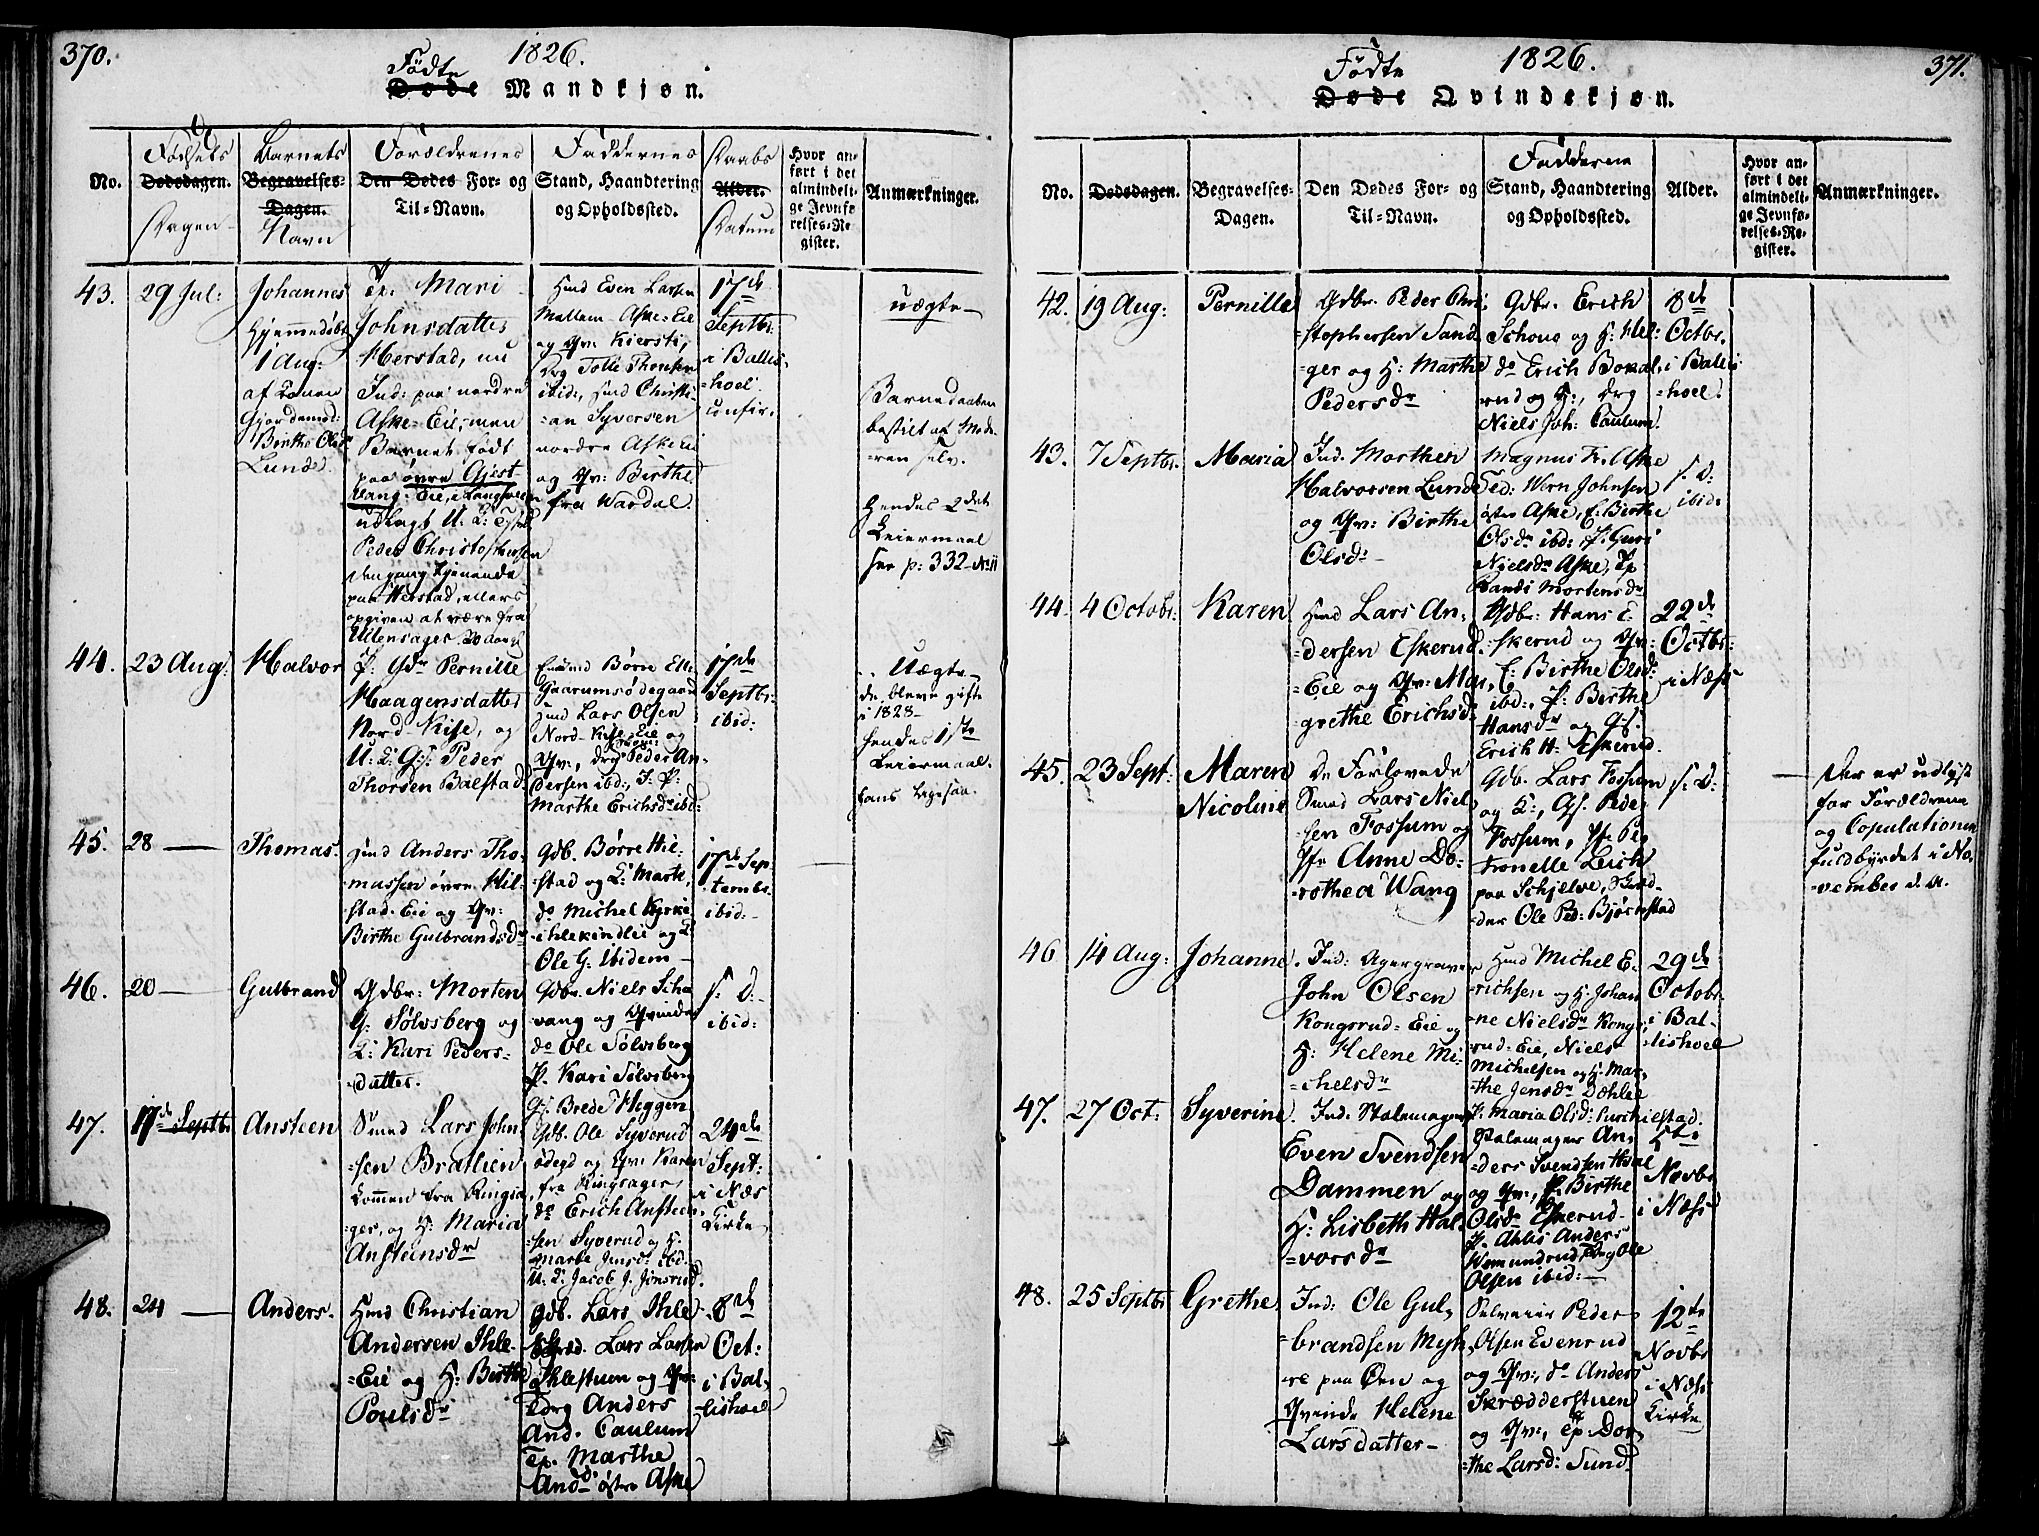 370.
1826.
Fødte
Døde Mandkjøn.
No.
Fødsels
Dødsdagen.
Dagen
Barnets
Begravelses-
Dagen.
Navn
Forældrenes
Den Dødes For- og
Til-Navn.
Faddernes
Stand, Haandtering
og Opholdssted.
Daabs
Alder.
Datum
Hvor an-
ført i det
almindeli-
ge Jevnfø-
relses-Re-
gister.
Anmærkninger.
43.
29 Jul:
Johannes
Hjemmedøbt
1 Aug:
af Konen
Gjordemod:
Birthe Olsd
Lunde.
Mari
Johnsdatter
Herstad, nu
Ind: paa nordre
Aske-Eie, men
Barnet født
paa øvre Gjest-
vang-Eie,
udlagt U: K:
Peder Christophersen
dengang tjenende
paa Herstad, ellers
opgiven at være fra
Ullensager 20 aar gl
Hmd Even Larsen
Mellem-Aske-Eie
og Qv: Kiersti,
Drg Tolle Thorsen
ibid:, Hmd Christi-
an Syversen
nordre Aske Eie
og Qv: Birthe
fra Wardal.
17de
Septbr:
i Ballis-
=hoel
uægte
Barnedaaben
bestilt af Mode-
=ren selv.
Hendes 2det
Leiermaal
see p: 332 No 11
44.
23 Aug:
Halvor
P: Gdr Pernille
Haagensdatter
Nord-Kise, og
U: K: G:S: Peder
Thorsen Balstad
Børre Elli
Gaarumsødegaard
Hmd Lars Olsen
Nord-Kise Eie og
Qv:, drg Peder An-
dersen ibd:, T: P:
Marthe Erichsdr ibd:
17de
Septbr:
ibid:
Uægte
de bleve gifte
i 1828
hendes 1ste
Leiermaal.
hans ligesaa.
45.
28 —
Thomas.
Hmd Anders Tho-
massen øvre Hil-
stad-Eie og Qv:
Birthe Gulbrandsdr
Gdb. Børre Hie-
stad og K: Marte,
do Michel Kyrki-
ihlekindlie og K:
Ole G: ibidem
17de Sep-
tembr.
ibid:
46.
20 —
Gulbrand
Gdbr: Morten
G: Sølvsberg og
K: Kari Peders-
datter.
Gdbr. Niels Scha-
vang og Qvinde
do Ole Sølvsberg
P. Kari Sølvsberg
G:S: Brede Heggen
s: D:
ibid:
47.
17de Septbr
Ansteen
Smed Lars John-
sen Bratlien
kommen fra Ringsa-
ger, og H: Maria
Ansteensdr
Gdb. Ole Syverud
ødegd og Qv: Karen
fra Ringsager,
do Erich Ansteen-
sen Syverud og H:
Marte Jensd: ibd.
U: K: Jacob J: Jønsrud.
24de
Sept:
i Næs
Kirke
48.
24 —
Anders.
Hmd Christian
Andersen Ihle-
=Eie og H: Birthe
Poulsdr
Gdb. Lars Ihle
Lars Larsen
Ihlestuen og Qv:
Drg Anders
And. Caulum
Tp. Marthe
Andd: østre Aske
8de
Oct:
i Bal-
lishoel
1826.
371.
Fødte
Døde Qvindekjøn.
No.
Dødsdagen.
Begravelses-
Dagen.
Den Dødes For- og
Til-Navn.
Fadderne
Stand, Haandtering
og Opholdssted.
Alder.
Hvor an-
ført i det
almindeli-
ge Jevnfø-
relses-Re-
gister.
Anmærkninger.
42.
19 Aug:
Pernille
Gdbr. Peder Chri-
=stophersen Sand-
=ger og H: Marthe
Pedersdr
Gdbr. Erich
Schoug og H: Hel:
do Erich Bokal-
rud og H:, Drg
Niels Joh: Caulum.
8de
Octbr.
i Ballis-
=hoel
43.
7 Septbr.
Maria
Ind. Morthen
Halvorsen Lunde
og Qv: Birthe
Olsd:
Magnus Fr. Aske
Wern Johnsen
østre Aske, E: Birthe
Olsdr ibd:, P: Guri
Nielsdr Aske, Tp
Randi Mortensdr
s: D:
ibid:
44.
4 Octobr:
Karen
Hmd Lars An-
dersen Eskerud
=Eie og Qv: Mar-
grethe Erichsd:
Gdbr: Hans E-
skerud og Qv:
E: Birthe Olsdr
ibd:, P: Birthe
Hansdr og G:S:
Erich H: Eskerud.
22de
Octbr:
i Næss
45.
23 Sept:
Maren
Nicoline
De Forlovede
Smed Lars Niel-
sen Fossum og
Anne Do-
rothea Wang
Gdb. Lars Fossum
og K:, GS. Peder
Fossum, Pe-
tronelle Leich
paa Schjelve,
Ole Ped: Bjørnstad
s: D:
Der er udlyst
for Forældrene
og Copulationen
fuldbyrdet i No-
=vember d. A.
46
14 Aug:
Johanne.
Ind: Agergraver
John Olsen
Kongsrud-Eie og
H: Helene Mi-
=chelsdr
Hmd Michel E-
richsen og H: Johan-
ne Nielsdr Kongs-
rud-Eie, Niels
Michelsen og H: Mar-
the Jensdr Dæhlie
P: Maria Olsd:
29de
Octobr.
i Bal-
lishoel
47.
27 Oct:
Syverine.
Ind. Stolemager
Even Svendsen
Dammen og
H: Lisbeth Hal-
=vorsdr
Stolemager An-
ders Svendsen Hval
og Qv:, P: Birthe
Olsdr Eskerud
P. Ahlis Anders
Womundrud, Drg Ole
Olsen ibid:
5te
Novbr
i Næss
48.
25 Septbr
Grethe
Ind: Ole Gul-
=brandsen Myh-
re paa Øen og
Qvinde Helene
Larsdatter
Selveier Peder
Olsen Evenrud
og Qv:, do Anders
Skrædderstuen
og Qv:, Tp: Dor-
the Larsd: Sund
12te
Novbr
i Næss
Kirke